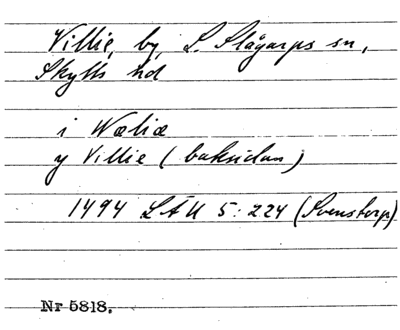 Villie, by, S. Slågarps sn,
Skytts hd
i Wæliæ
y Villie (baksidan)
1494 LÄU 5:224 (Svenstorp)
Nr 5818.